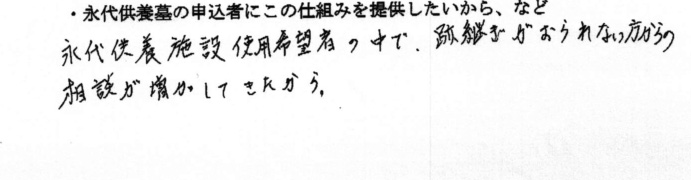 ・永代供養墓の申込者にこの仕組みを提供したいから、など
永代供養施設使用希望者の中で、跡継ぎがおられない方からの
相談が増加してきたから。